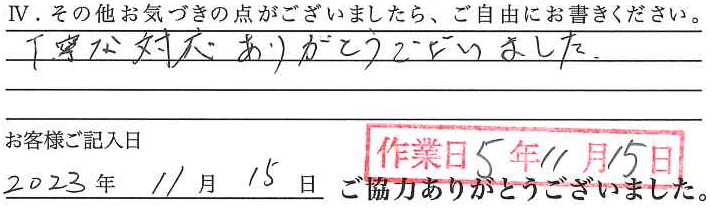 Ⅳ．その他お気づきの点がございましたら、ご自由にお書きください。
丁寧な対応ありがとうございました.
お客様ご記入日
作業日 5年11月15日
2023年 11月 15日 ご協力ありがとうございました。